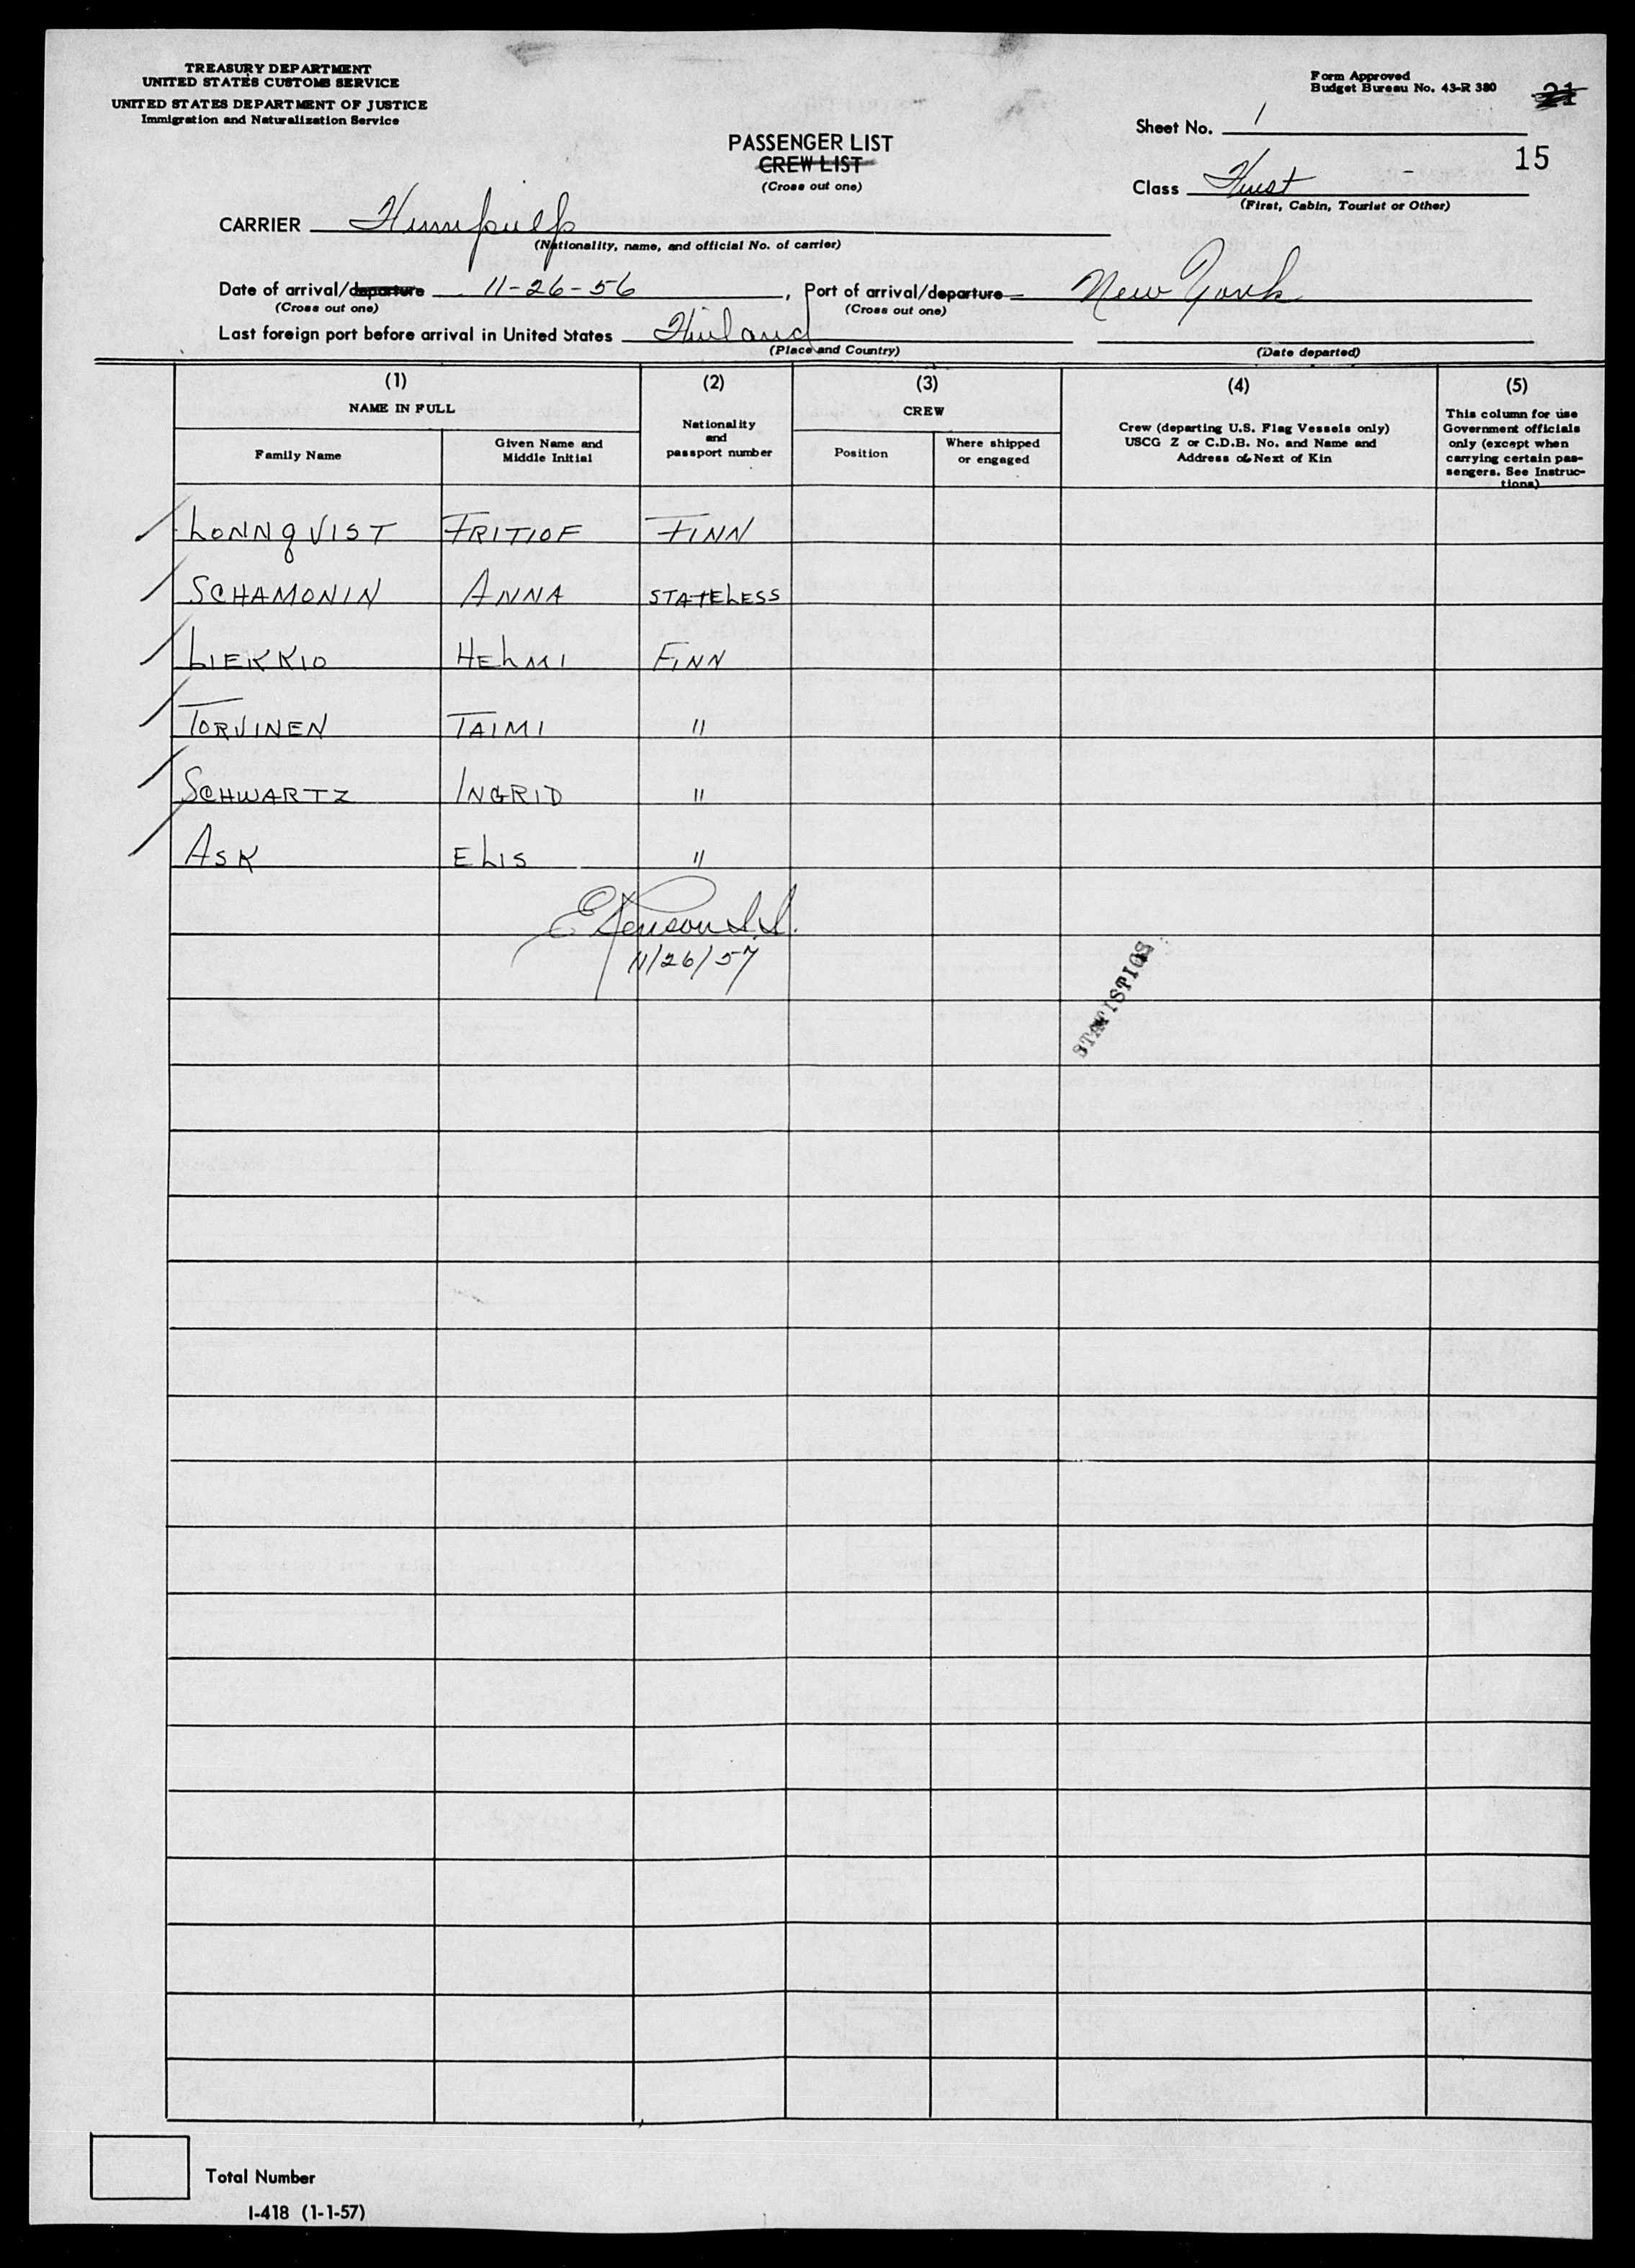 TREASURY DEPARTMENT
UNITED STATES CUSTOMS SERVICE
UNITED STATES DEPARTMENT OF JUSTICE
Immigration and Naturalization Service
Form Approved
Budget Bureau No. 43-R 380
21
Sheet No. 1
15
PASSENGER LIST
CREW LIST
(Cross out one)
Class First
(First, Cabin, Tourist or Other)
CARRIER Finnpulp
(Nationality, name, and official No. of carrier)
Date of arrival/departure 11-26-56, Port of arrival/departure New York
(Cross out one) (Cross out one)
Last foreign port before arrival in United States Finland
(Place and Country) (Date departed)
(1) (2) (3) (4) (5)
NAME IN FULL
Family Name
Given Name and
Middle Initial
Nationality
and
passport number
CREW
Position
Where shipped
or engaged
Crew (departing U.S. Flag Vessels only)
USCG Z or C.D.B. No. and Name and
Address of Next of Kin
This column for use
Government officials
only (except when
carrying certain pas-
sengers. See Instruc-
tions)
LONNQVIST FRITIOF FINN
SCHAMONIN ANNA STATELESS
LIEKKIO HELMI FINN
TORVINEN TAIMI "
SCHWARTZ INGRID "
ASK ELIS "
11/26/57
STATISTICS
Total Number
I-418 (1-1-57)